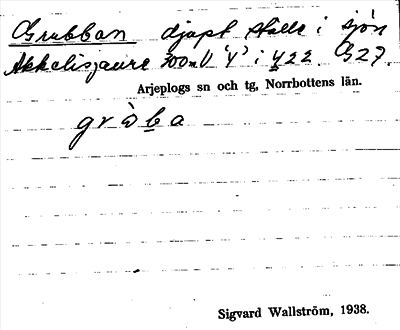 Grubban djupt ställe i sjön
Akkelisjaure 700m V "Y" i Y 22. G27.
Arjeplogs sn och tg, Norrbottens län.
gròba
Sigvard Wallström, 1938.